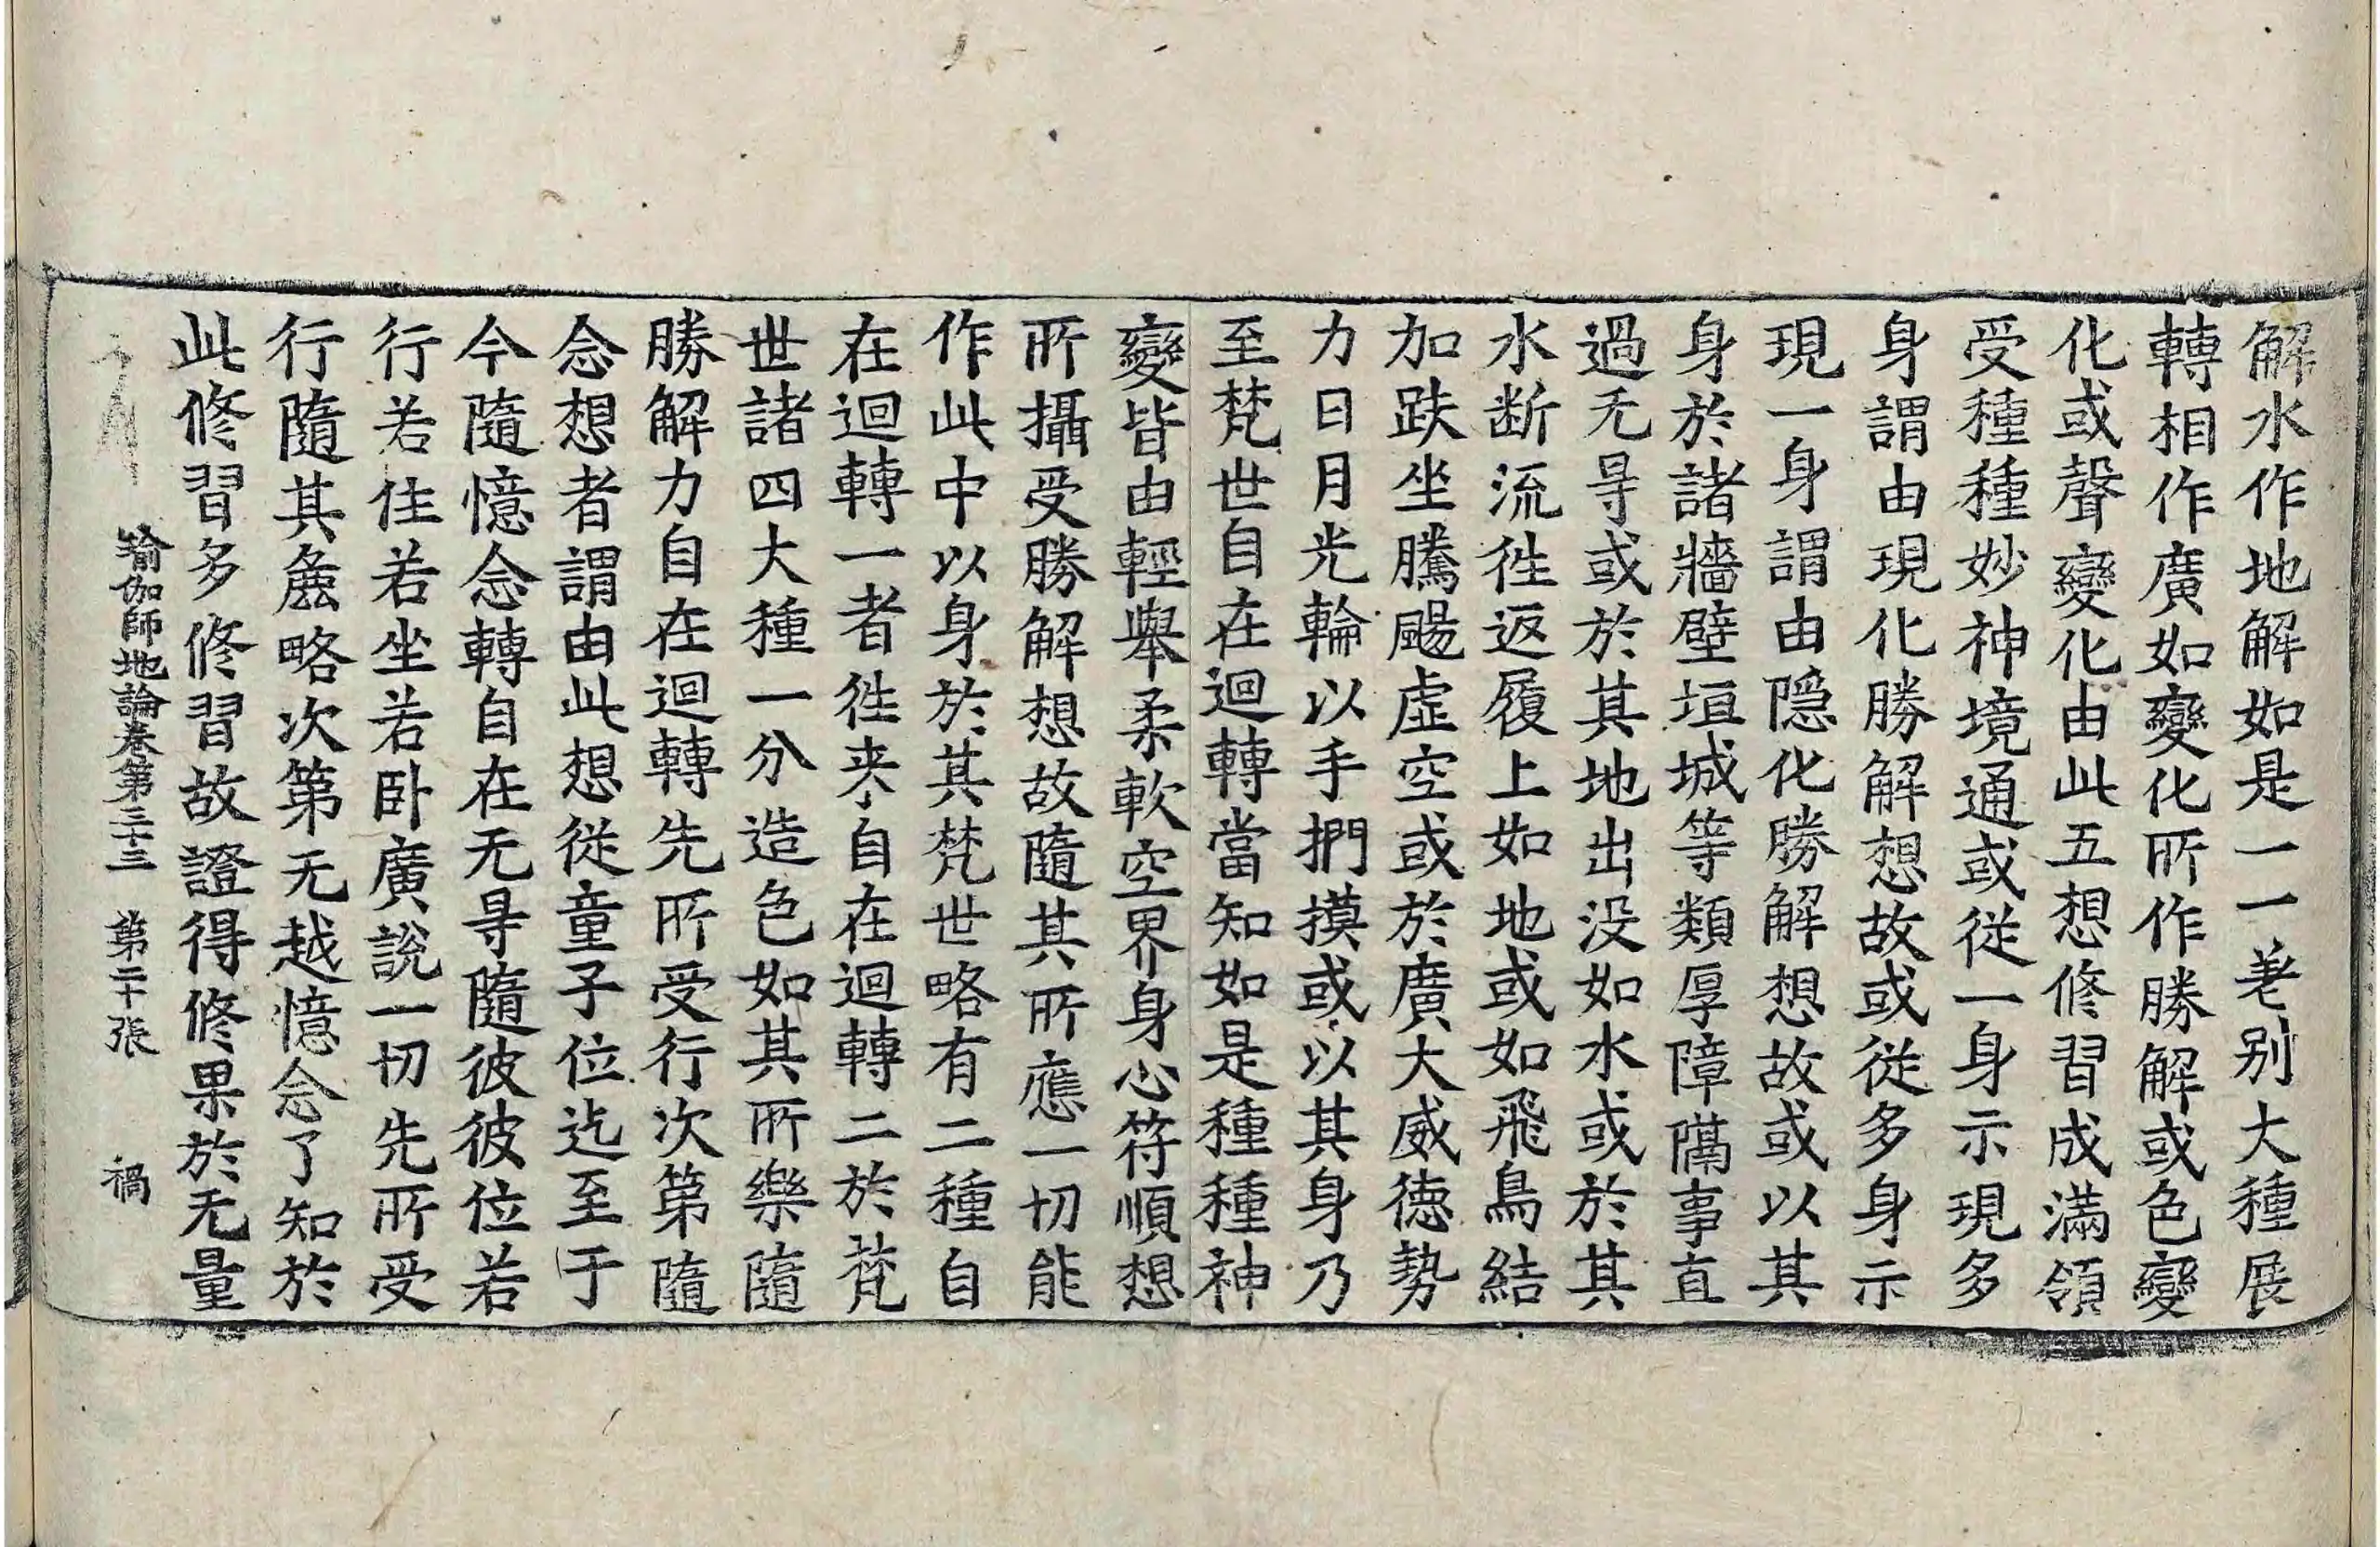 解水作地解如是一一差别大種展
轉相作廣如變化所作勝解或色變
化或聲變化由此五想修習成滿領
受種種妙神境通或從一身示現多
身謂由現化勝解想故或從多身示
現一身謂由隱化勝解想故或以其
身於諸牆壁垣城等類厚障隔事直
過无㝵或於其地出没如水或於其
水断流徃返履上如地或如飛鳥結
加趺坐騰颺虛空或於廣大威德勢
力日月光輪以手捫摸或以其身乃
至梵世自在迴轉當知如是種種神
變皆由輕舉柔軟空界身心符順想
所攝受勝解想故隨其所應一切能
作此中以身於其梵世略有二種自
在迴轉一者徃来自在迴轉二於梵
世諸四大種一分造色如其所樂隨
勝解力自在迴轉先所受行次第隨
念想者謂由此想從童子位迄至于
今隨憶念轉自在无㝵隨彼彼位若
行若住若坐若卧廣說一切先所受
行隨其麁略次第无越憶念了知於
此修習多修習故證得修果於无量
瑜伽師地論卷第三十三 第二十張 禍